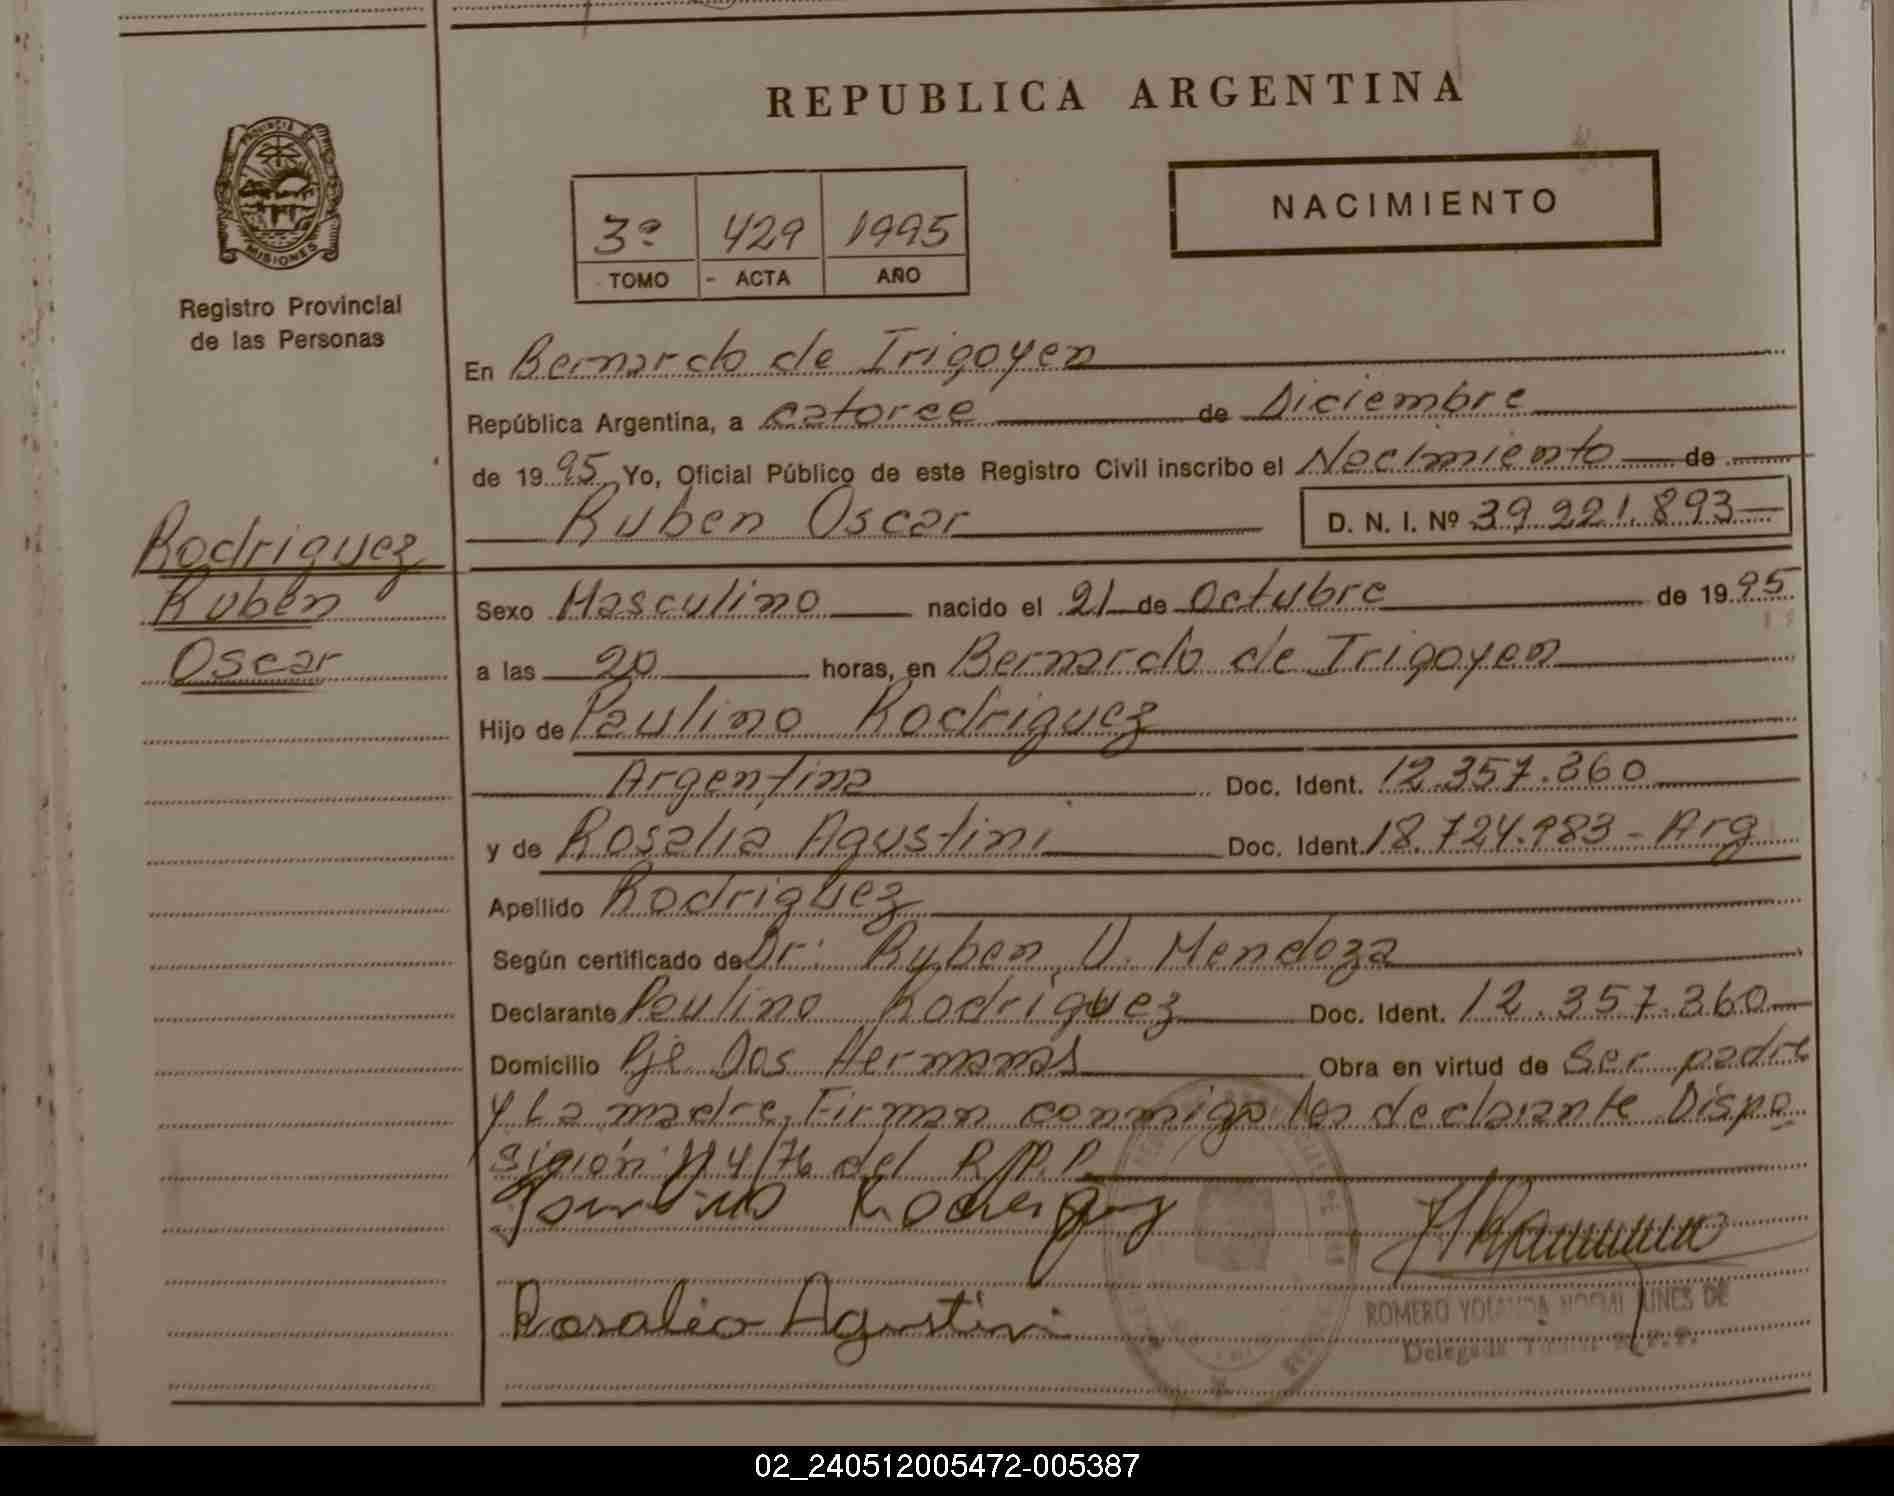 REPUBLICA ARGENTINA
PROVINCIA DE
MISIONES
Registro Provincial
de las Personas
3º 429 1995
TOMO - ACTA AÑO
NACIMIENTO
En Bernardo de Irigoyen
República Argentina, a catorce de Diciembre
de 1995 Yo, Oficial Público de este Registro Civil inscribo el Nacimiento de
Ruben Oscar D. N. I. Nº 39.221.893
Rodriguez
Ruben
Oscar
Sexo Masculino nacido el 21 de Octubre de 1995
a las 20 horas, en Bernardo de Irigoyen
Hijo de Paulino Rodriguez
Argentina Doc. Ident. 12.357.360
y de Rosalia Agustini Doc. Ident. 18.724.983 - Arg
Apellido Rodriguez
Según certificado de Dr. Ruben D. Mendoza
Declarante Paulino Rodriguez Doc. Ident. 12.357.360
Domicilio Pje Dos Hermanas Obra en virtud de Ser padre
y La madre, Firman conmigo los declarante Dispo
sición Nº 4/76 del R.P.P.
Paulino Rodriguez
Rosalia Agustini
ROMERO YOLANDA NOEMI NUNES DE
02_240512005472-005387